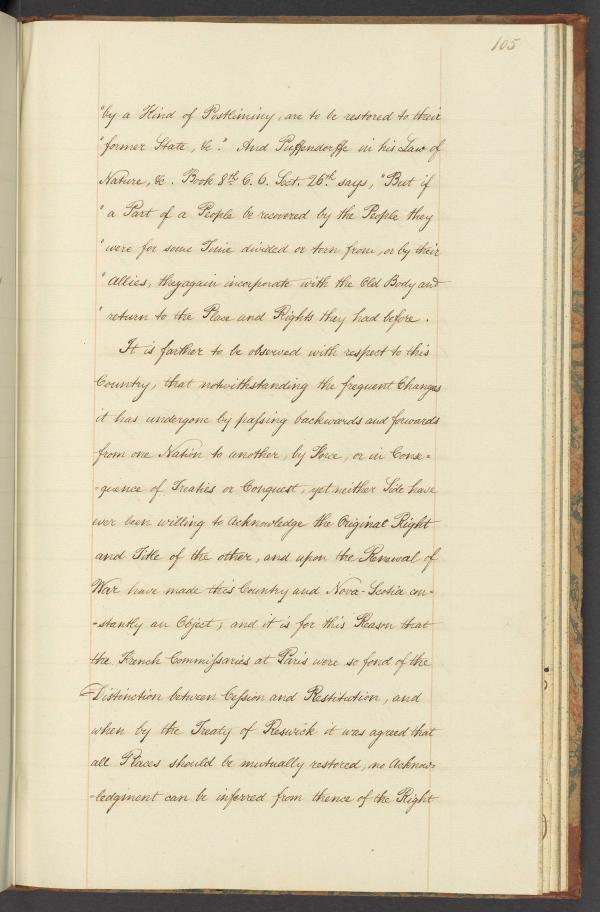 105
"by a Kind of Postliminy, are to be restored to their
"former State, &c." And Puffendorffe in his Law of
Nature, &c. Book 8th C. 6. Sect. 26th says, "But if
"a Part of a People be recovered by the People they
"were for some Time divided or torn from, or by their
"Allies, they again incorporate with the Old Body and
"return to the Place and Rights they had before.
It is farther to be observed with respect to this
Country, that notwithstanding the frequent Changes
it has undergone by passing backwards and forwards
from one Nation to another, by Force, or in Conse-
-quence of Treaties or Conquest, yet neither Side have
ever been willing to Acknowledge the Original Right
and Title of the other, and upon the Renewal of
War have made this Country and Nova-Scotia con-
-stantly an Object, and it is for this Reason that
the French Commissaries at Paris were so fond of the
Distinction between Cession and Restitution, and
when by the Treaty of Reswick it was agreed that
all Places should be mutually restored, no Acknow-
-ledgment can be inferred from thence of the Right